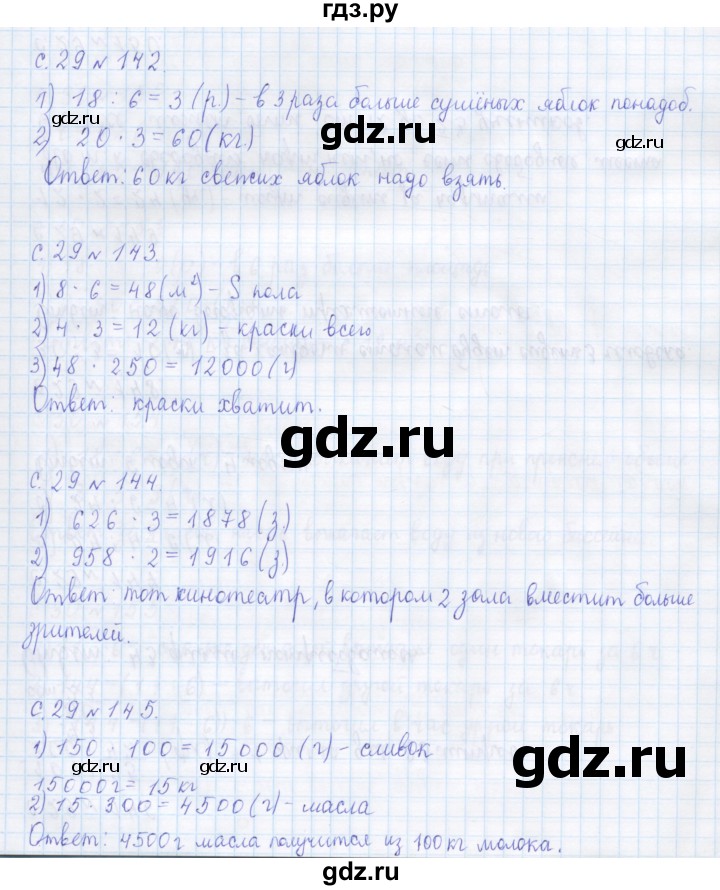 гдз.ру
с.29 № 142.
1) 18 : 6 = 3 (р.) - в 3 раза больше сушёных яблок понадоб.
gdz.ru gdz.ru gdz.ru
2) 20 · 3 = 60 (кг)
Ответ: 60 кг свежих яблок надо взять.
с.29 № 143.
1) 8 · 6 = 48 (м²) - S пола
2) 4 · 3 = 12 (кг) - краски всего
3) 48 · 250 = 12000 (г)
Ответ: краски хватит.
gdz.ru
с.29 № 144.
1) 626 · 3 = 1878 (з.)
2) 958 · 2 = 1916 (з.)
Ответ: тот кинотеатр, в котором 2 зала вместит больше
зрителей.
с.29 № 145.
1) 150 · 100 = 15000 (г) - сливок
gdz.ru gdz.ru gdz.ru
15000 г = 15 кг
2) 15 · 300 = 4500 (г) - масла
Ответ: 4500 г масла получится из 100 кг молока.
gdz.ru